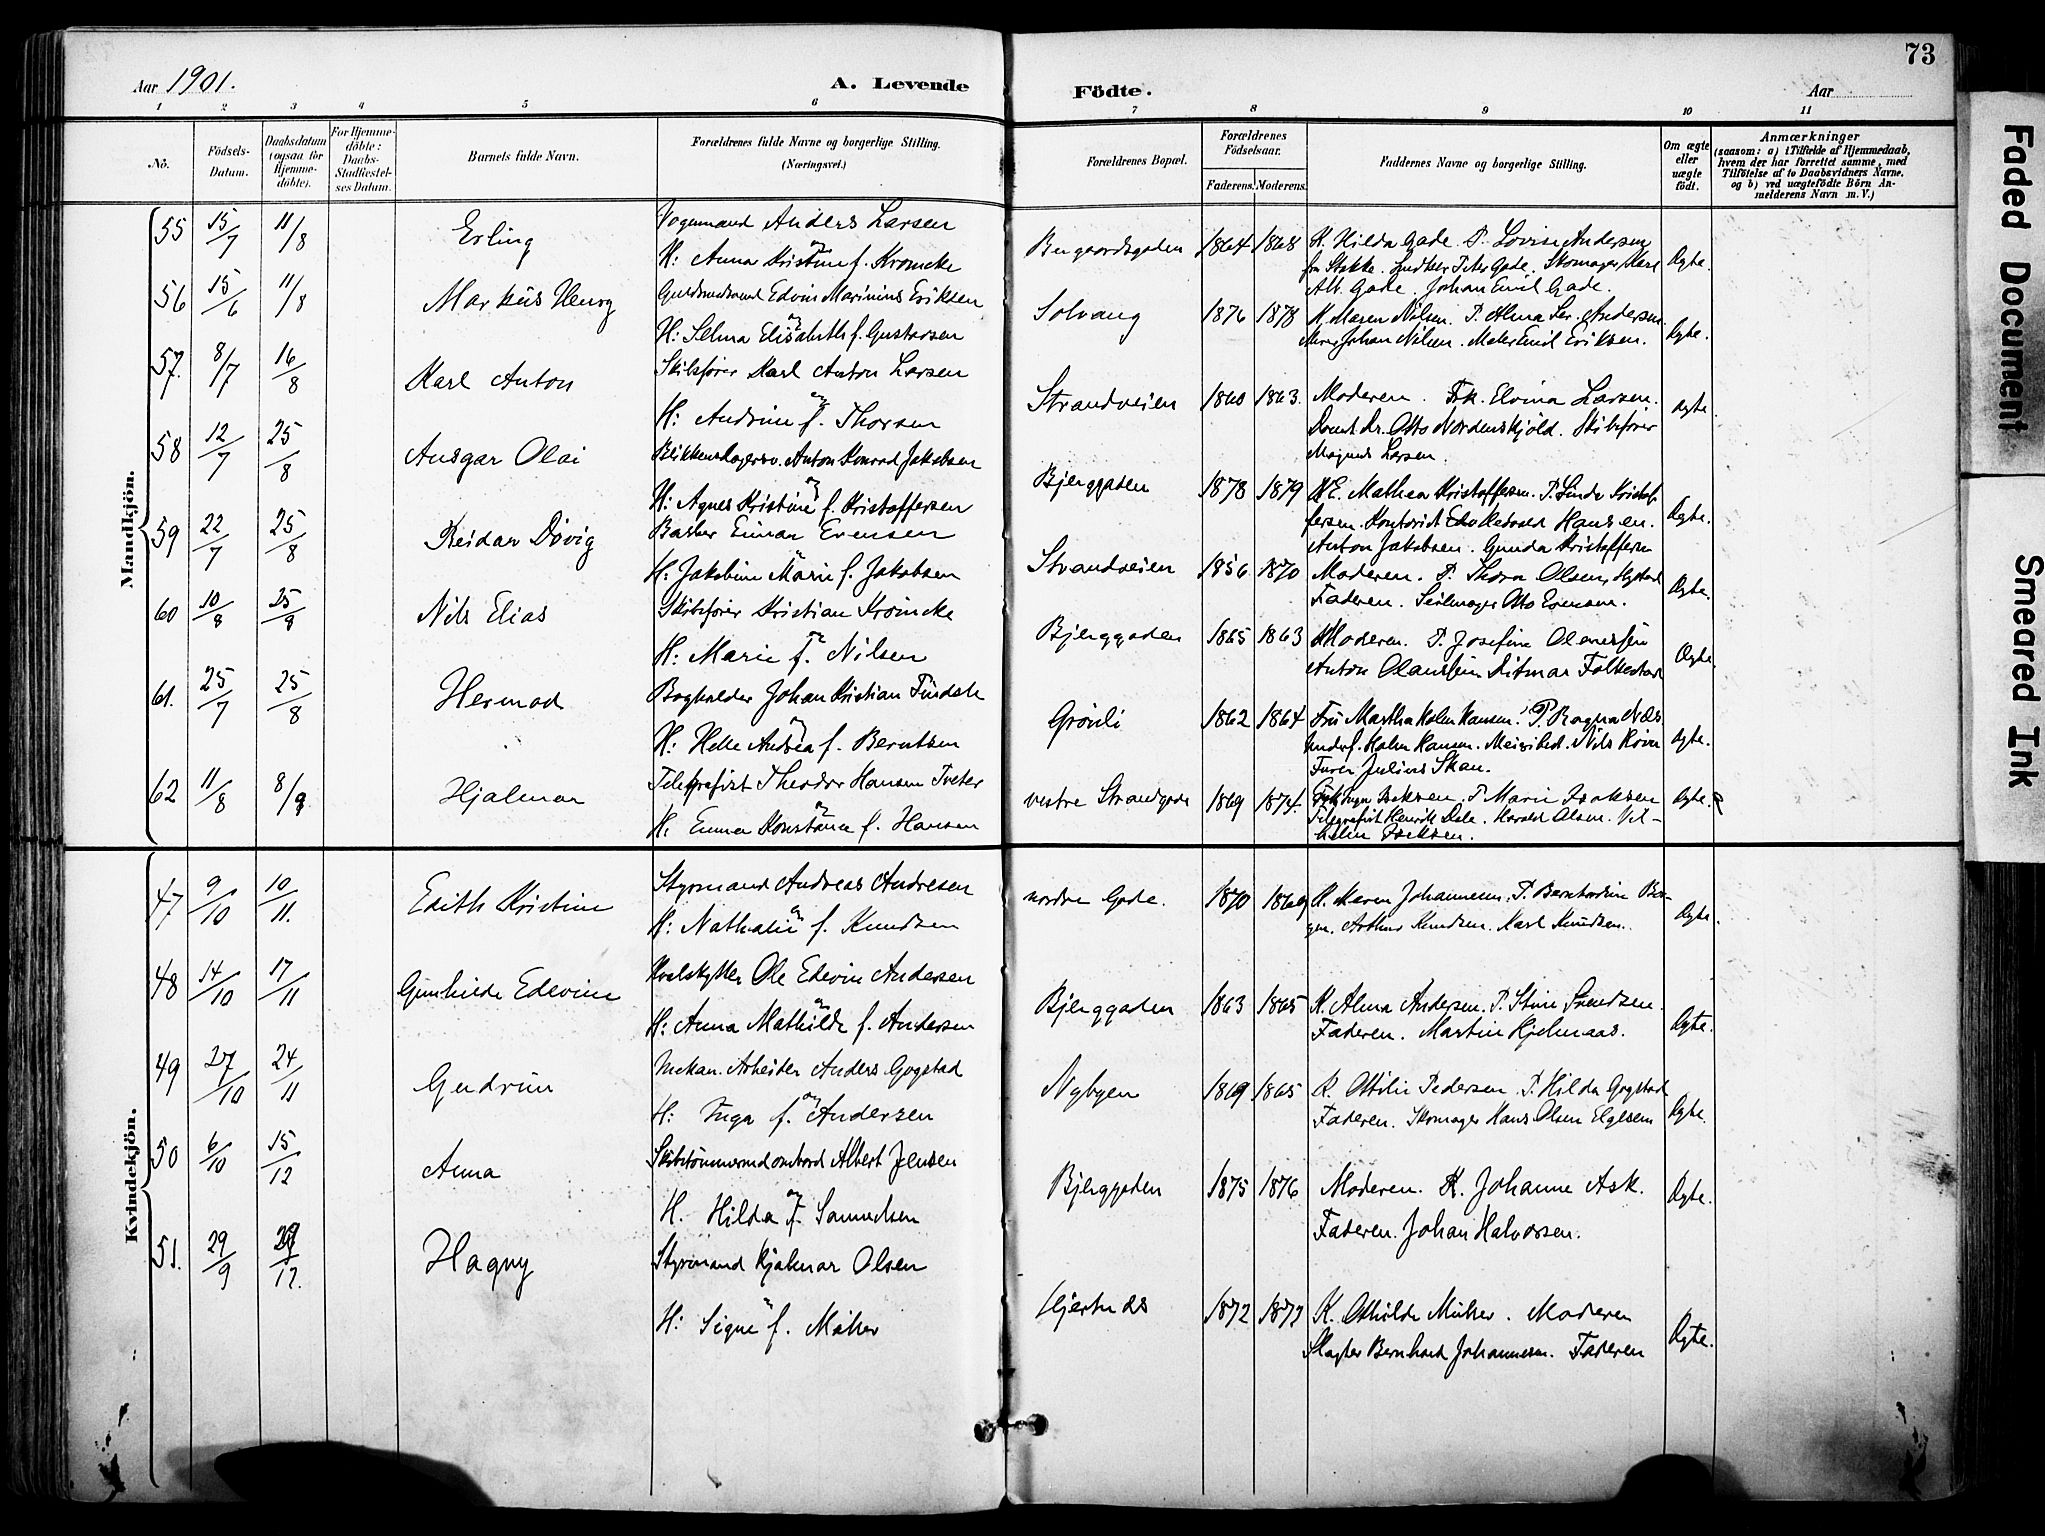 73
Aar 1901.
A. Levende Födte.
Aar
1 2 3 4 5 6 7 8 9 10 11
No.
Födsels-Datum.
Daabsdatum (ogsaa for Hjemme-döbte).
For Hjemme-döbte: Daabs-Stadfæstel-ses Datum.
Barnets fulde Navn.
Forældrenes fulde Navne og borgerlige Stilling.
(Næringsvei.)
Forældrenes Bopæl.
Forældrenes Födselsaar.
Faderens. Moderens.
Faddernes Navne og borgerlige Stilling.
Om ægte eller uægte födt.
Anmærkninger
(saasom: a) i Tilfælde af Hjemmedaab,
hvem der har forrettet samme, med
Tilföielse af to Daabsvidners Navne,
og b) ved uægtefödte Börn An-
melderens Navn m. V.)
Mandkjön.
55 15/7 11/8 Erling
Vognmand Anders Larsen
H: Anna Kristine f. Kroincke
Bugaardsgaden 1864 1868
K. Hilda Gade. P. Lovise Andersen
fra Stokke. Peter Gade. Skomager Karl
Alb. Gade. Johan Emil Gade.
Ægte.
56 15/6 11/8 Markus Henry
Guldsmedsvend Edvin Marinius Eriksen
H: Selma Elisabeth f. Gustavsen
Solvang 1876 1878
K. Maren Nilsen. P. Alma Andersen
Murer Johan Nilsen. Maler Emil Eriksen.
Ægte.
57. 8/7 16/8 Karl Anton
Skibsfører Karl Anton Larsen
H: Andrine f. Thorsen
Strandveien 1860 1863.
Moderen. Frk. Elvina Larsen.
Docent Dr. Otto Nordenskjöld. Skibsfører
Magnus Larsen.
Ægte.
58 12/7 25/8 Ansgar Olai
Blikkenslagersv. Anton Konrad Jakobsen
H: Agnes Kristine f. Kristoffersen
Bjerggaden 1878 1879
E. Mathea Kristoffersen. P. Linda Kristof-
fersen. Kontorist Hansen.
Anton Jakobsen. Gunda Kristoffersen
Ægte.
59 22/7 25/8 Reidar Dövig
Barber Einar Evensen
H: Jakobine Marie f. Jakobsen
Strandveien 1856 1870
Moderen. P. Thora Olsen,
Faderen. Seilmager Otto Evensen.
Ægte.
60 10/8 25/8 Nils Elias
Skibsfører Kristian Kroincke
H: Marie f. Nilsen
Bjerggaden 1865 1863
Moderen. P. Josefine Olaussen
Anton Olaussen Ditmar Falkestad
Ægte.
61. 25/7 25/8 Hermod
Bogholder Johan Kristian
H: Helle Andrea f. Berntsen
Grönli 1862 1864
Fru Martha Holm Hansen. P. Ragna Næs
Holm Hansen. Nils
Julius Skau.
Ægte.
62 11/8 8/9 Hjalmar
Telegrafist Theodor Hansen Tveter
H. Emma Konstance f. Hansen
vestre Strandgade 1869 1874.
Frk. Inga Isaksen. P. Marie Isaksen
Telegrafist Henrik Dale. Harald Olsen. Vil-
helm Isaksen.
Ægte.
Kvindekjön.
47 9/10 10/11. Edith Kristine
Styrmand Andreas Andresen
H: Nathalie f. Knudsen
nordre Gade. 1870 1869
K. Maren Johannesen. P. Bernhardine Ber-
gen. Arthur Knudsen. Karl Knudsen.
Ægte.
48 14/10 17/11 Gunhilde Edevine
Hvalskytter Ole Edevin Andersen
H: Anna Mathilde f. Andersen
Bjerggaden 1863 1865
K. Alma Andersen. P. Stine Svendsen.
Faderen. Martin Hjelmaas.
Ægte.
49 27/10 24/11 Gudrun
Mekan. Arbeider Anders Gogstad
H: Inga f. Andersen
Nybyen 1869 1865
K. Ottilie Pedersen. P. Hilda Gogstad
Faderen. Skomager Hans Olsen Elgesem
Ægte.
50 6/10 15/12 Anna
Skibstömmermd ombord Albert Jensen
H. Hilda f. Samuelsen
Bjerggaden 1875 1876
Moderen. K. Johanne Ask.
Faderen. Johan Halvorsen.
Ægte.
51. 29/9 29/12. Hagny
Styrmand Hjalmar Olsen
H: Signe f. Møller
Hjertnæs 1872 1873
K. Othilde Müller. Moderen
Slagter Bernhard Johannesen. Faderen
Ægte.
Faded Document
Smeared Ink